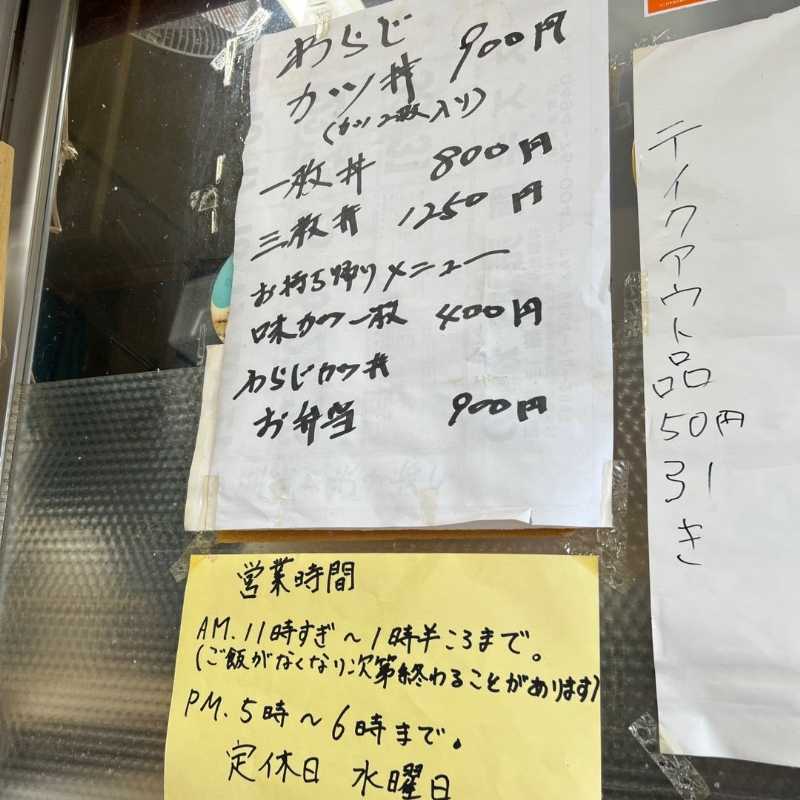 わらじ
カツ丼 900円
(カツ2枚入り)
一枚丼 800円
三枚丼 1250円
お持ち帰りメニュー
味カツ一枚 400円
わらじカツ丼
お弁当 900円
テイクアウト品50円引き
営業時間
AM.11時すぎ〜1時半ころまで。
(ご飯がなくなり次第終わることがあります)
PM.5時〜6時まで。
定休日 水曜日